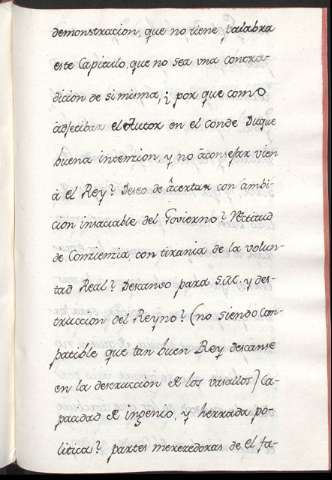 demonstracion, que no tiene palabra
este Capitulo, que no sea vna contra-
dicion de si misma, ¿ por que como
adjetibar el Autor en el conde Duque
buena intenzion, y no aconsejar vien
à el Rey? Deseo de acertar con ambi-
cion insaciable del Govierno?
de Conzienzia con tirania de la volun-
tad Real? Descanso para S.M. y des-
truccion del Reyno? (no siendo com-
patible que tan buen Rey descanse
en la destruccion de los vasallos) Ca-
pacidad de ingenio, y herrada po-
litica? partes merezedoras de el fa-